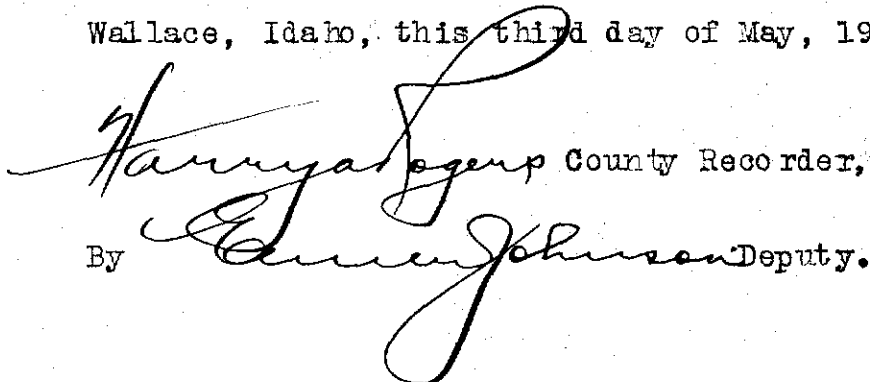 Wallace, Idaho, this third day of May, 19
Harry A Rogers County Recorder,
By Johnson Deputy.